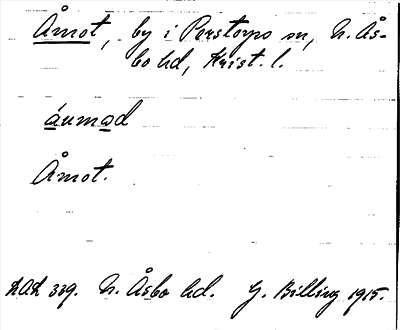 Åmot, by i Perstorps sn, N. Ås-
bo hd, Krist. l.
áumad
Åmot.
LAL 339. N. Åsbo hd. G. Billing 1915.